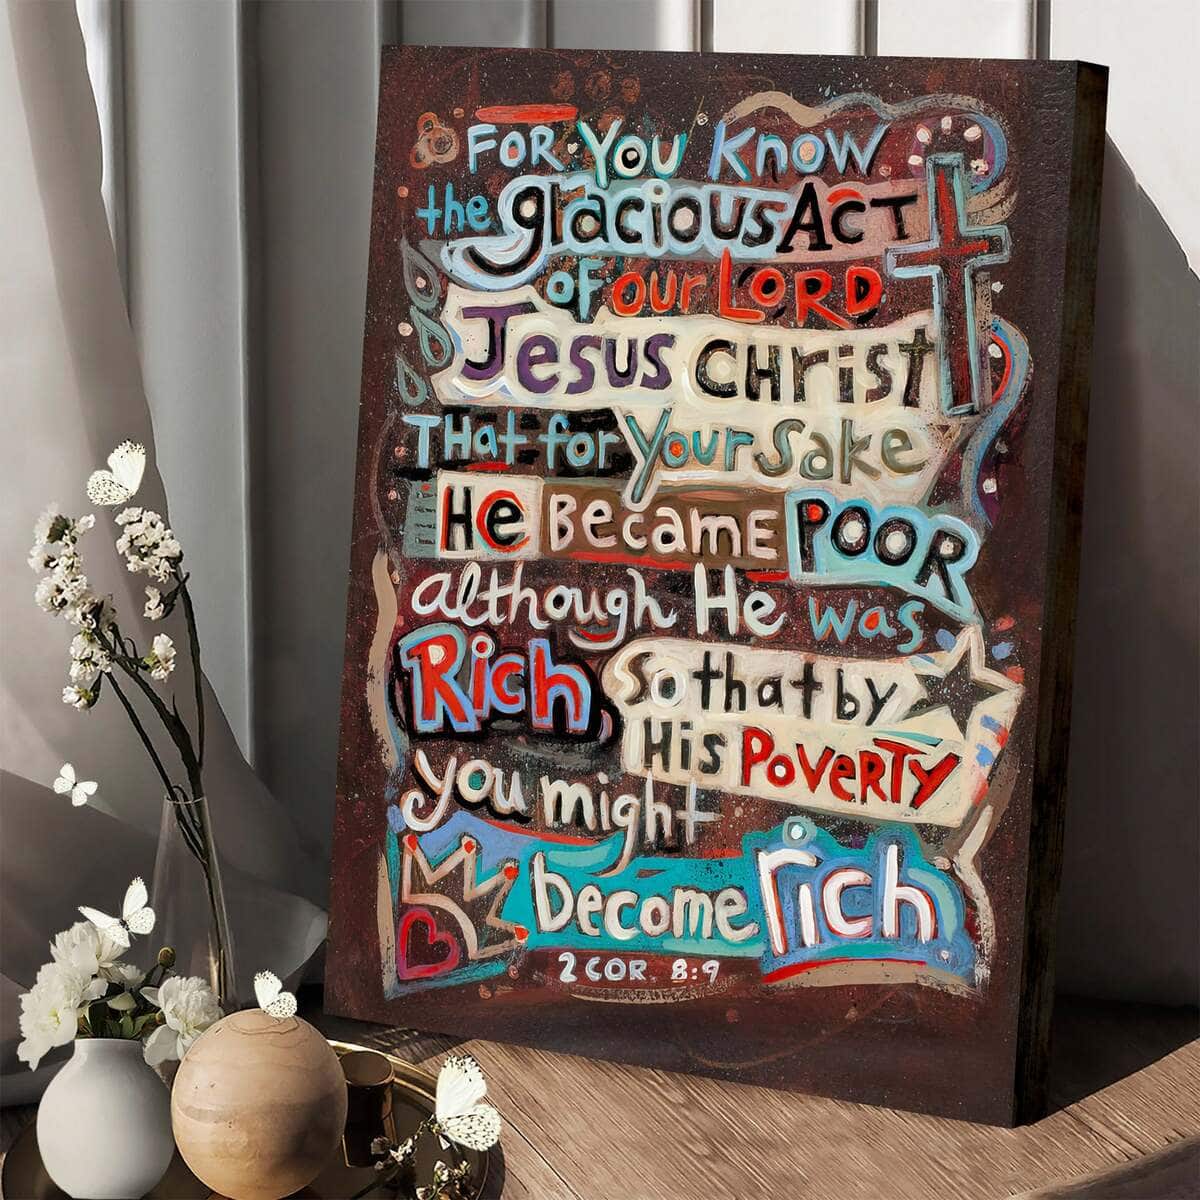 FOR YOU KNOW
the gracious ACT
OF OUR LORD
Jesus CHRIST
THat for Your Sake
He Became POOR
although He was
Rich, So that by
His POVERTY
you might
become rich
2 COR. 8:9